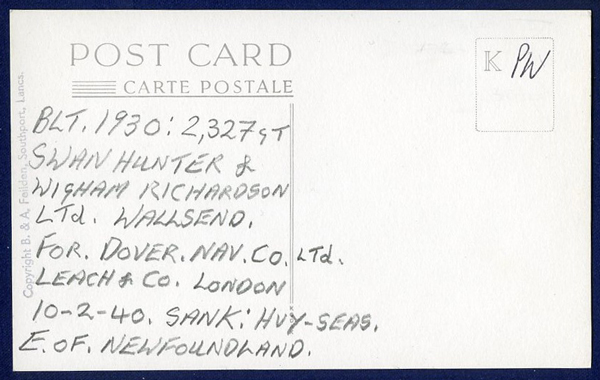 POST CARD
CARTE POSTALE
K PW
BLT. 1930: 2,327 GT
SWAN HUNTER &
WIGHAM RICHARDSON
LTd. WALLSEND.
FOR. DOVER. NAV. CO. LTd.
LEACH & CO. LONDON
10-2-40. SANK: HVY-SEAS.
E. OF. NEWFOUNDLAND.
Copyright B. & A. Feilden, Southport, Lancs.